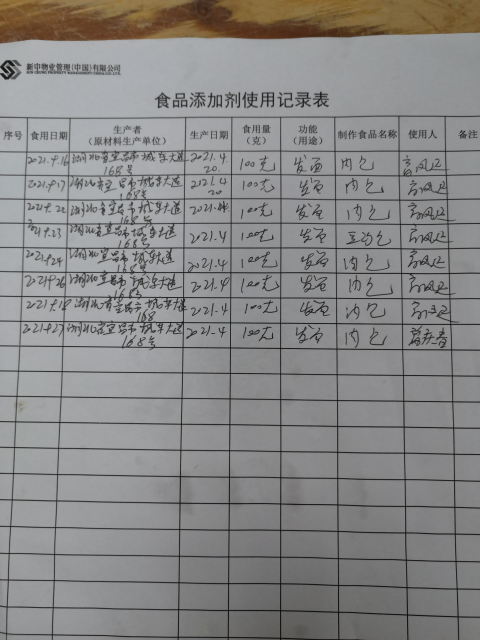 新中物业管理(中国)有限公司
SUN CHUNG PROPERTY MANAGEMENT (CHINA) CO., LTD
食品添加剂使用记录表
序号 食用日期 生产者（原材料生产单位） 生产日期 食用量（克） 功能（用途） 制作食品名称 使用人 备注
2021.9.16 湖北省宜昌市城东大道168号 2021.4.20 100克 发面 肉包
2021.9.17 湖北省宜昌市城东大道168号 2021.4.20 100克 发面 肉包
2021.9.22 湖北省宜昌市城东大道168号 2021. 100克 发面 肉包
2021.9.23 湖北省宜昌市城东大道168号 2021.4 100克 发面 包
2021.9.24 湖北省宜昌市城东大道168号 2021.4 100克 发面 肉包
2021.9.26 湖北省宜昌市城东大道168号 2021.4 100克 发面 肉包
湖北省宜昌市城东大道168 2021.4 100克 发面 肉包
2021.9.27 湖北省宜昌市城东大道168号 2021.4 100克 发面 肉包